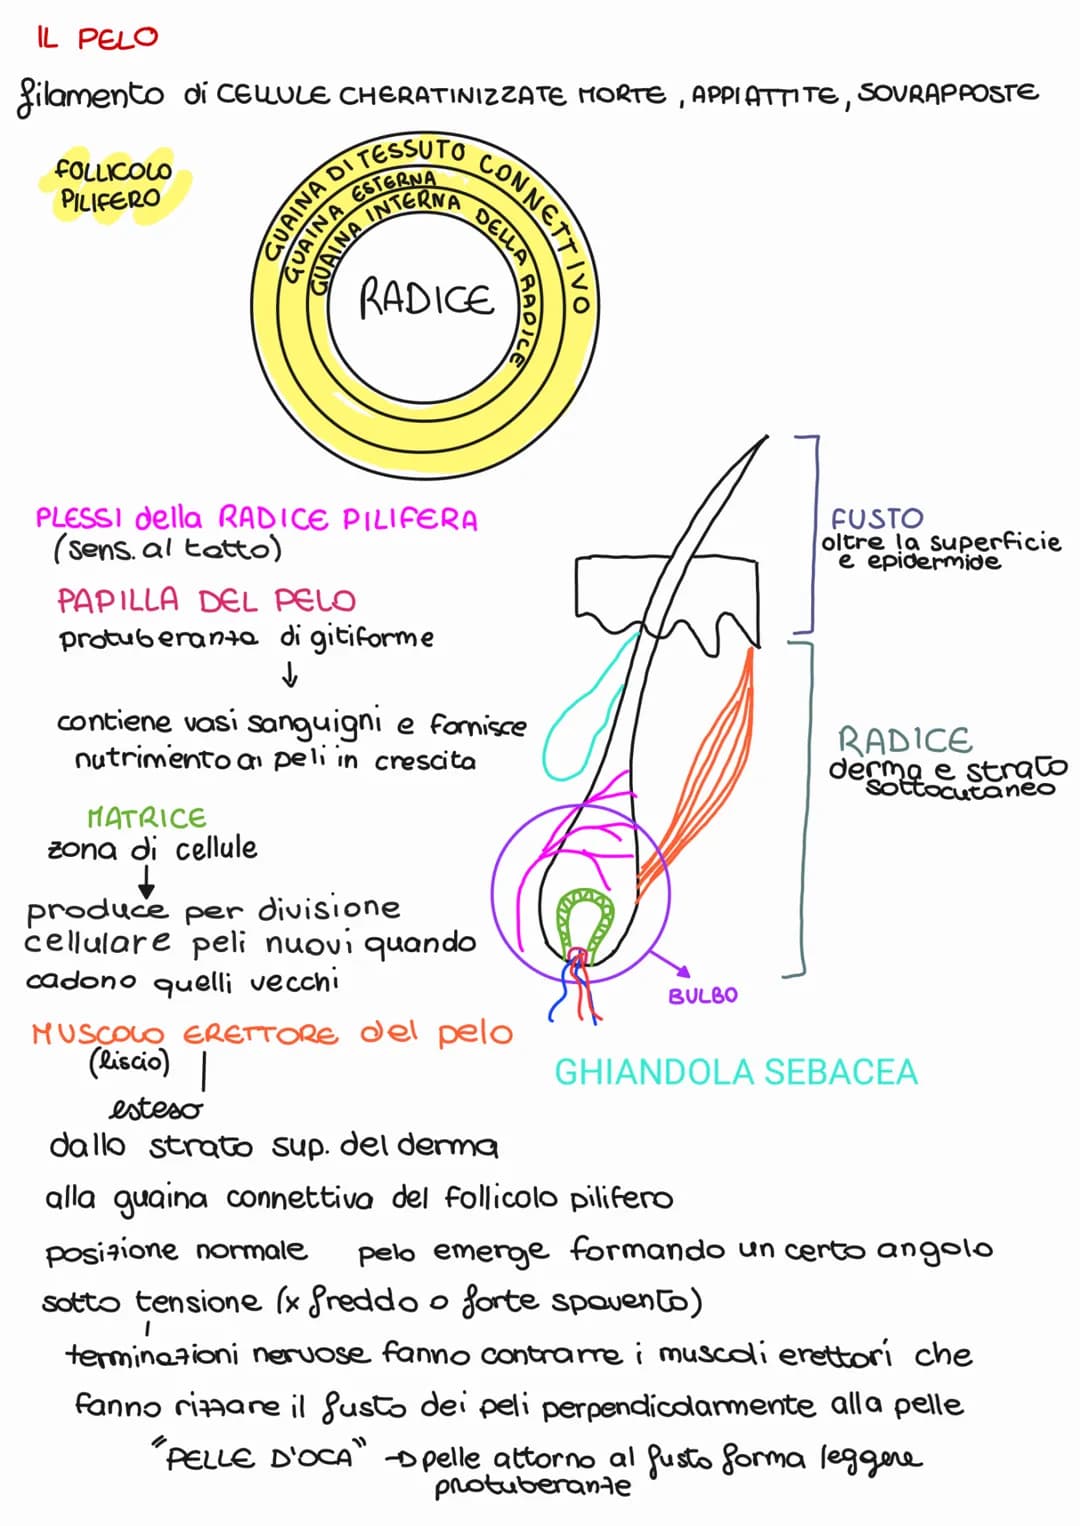 IL PELO
filamento di CELLULE CHERATINIZZATE MORTE, APPIATTITE, SOVRAPPOSTE
FOLLICOLO
PILIFERO
GUAINA DI TESSUTO CONNETTIVO
GUAINA ESTERNA
GUAINA INTERNA DELLA RADICE
RADICE
PLESSI della RADICE PILIFERA
(sens. al tatto)
PAPILLA DEL PELO
protuberanza di gitiforme
↓
contiene vasi sanguigni e fornisce
nutrimento ai peli in crescita
MATRICE
zona di cellule
↓
produce per divisione
cellulare peli nuovi quando
cadono quelli vecchi
FUSTO
oltre la superficie
e epidermide
RADICE
derma e strato
sottocutaneo
BULBO
GHIANDOLA SEBACEA
MUSCOLO ERETTORE del pelo
(liscio)
esteso
dallo strato sup. del derma
alla guaina connettiva del follicolo pilifero
posizione normale pelo emerge formando un certo angolo
sotto tensione (x freddo o forte spavento)
terminazioni nervose fanno contrarre i muscoli erettori che
fanno rizzare il fusto dei peli perpendicolarmente alla pelle
"PELLE D'OCA" → pelle attorno al fusto forma leggere
protuberanze